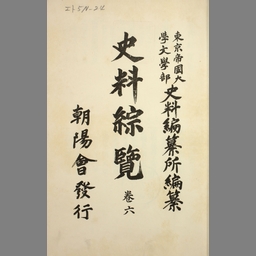 東京帝國大
學文學部
史料編纂所編纂
史料綜覽
卷六
朝陽會發行